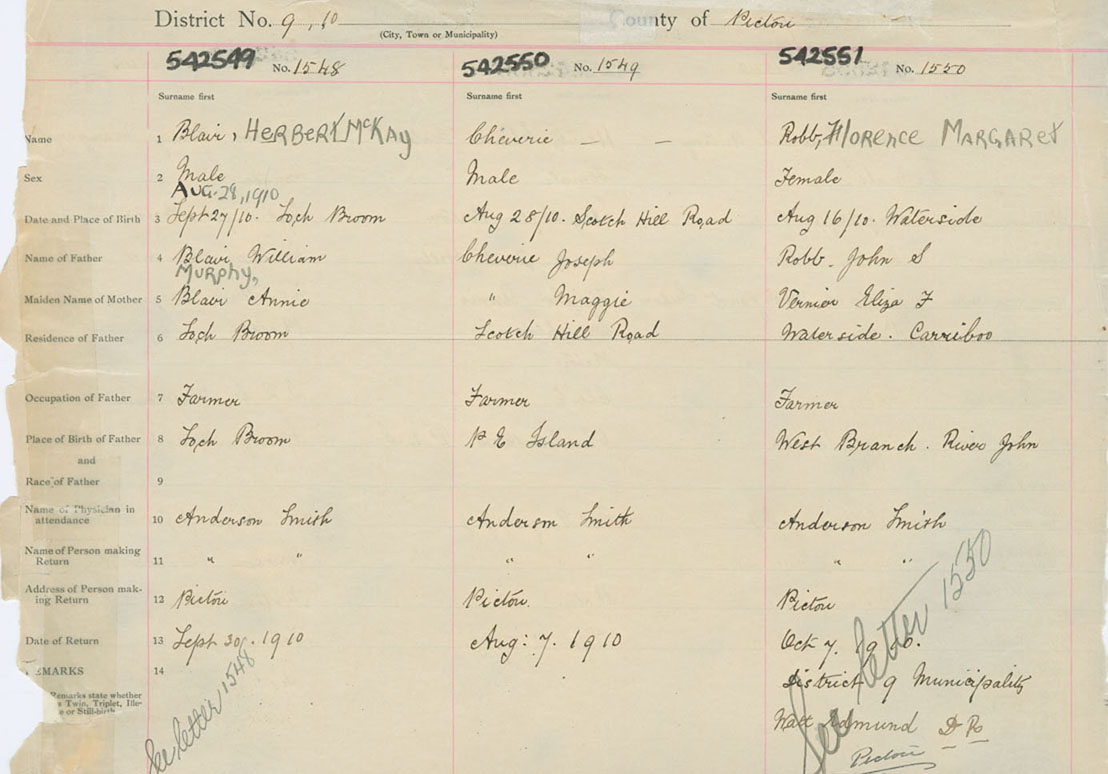 District No. 9, 10 County of Pictou
(City, Town or Municipality)
542549 No. 1548 542550 No. 1549 542551 No. 1550
Surname first Surname first Surname first
Name 1 Blair, HERBERT McKAY Cheverie — — Robb, FLORENCE MARGARET
Sex 2 Male Male Female
AUG. 28, 1910
Date and Place of Birth 3 Sept 27/10. Loch Broom Aug 28/10. Scotch Hill Road Aug 16/10. Waterside
Name of Father 4 Blair, William Cheverie Joseph Robb. John S
MURPHY,
Maiden Name of Mother 5 Blair Annie " Maggie Vernier Eliza F
Residence of Father 6 Loch Broom Scotch Hill Road Waterside. Carriboo
Occupation of Father 7 Farmer Farmer Farmer
Place of Birth of Father 8 Loch Broom P E Island West Branch. River John
and
Race of Father 9
Name of Physician in
attendance 10 Anderson Smith Anderson Smith Anderson Smith
Name of Person making
Return 11 " " " " " "
Address of Person mak-
ing Return 12 Pictou Pictou. Pictou
Date of Return 13 Sept 30. 1910 Aug: 7. 1910 Oct 7. 1910.
EMARKS 14
District 9 Municipality
Remarks state whether
s Twin, Triplet, Ille-
e or Still-birth
Edmund D R
Pictou
See letter 1548
See letter 1550